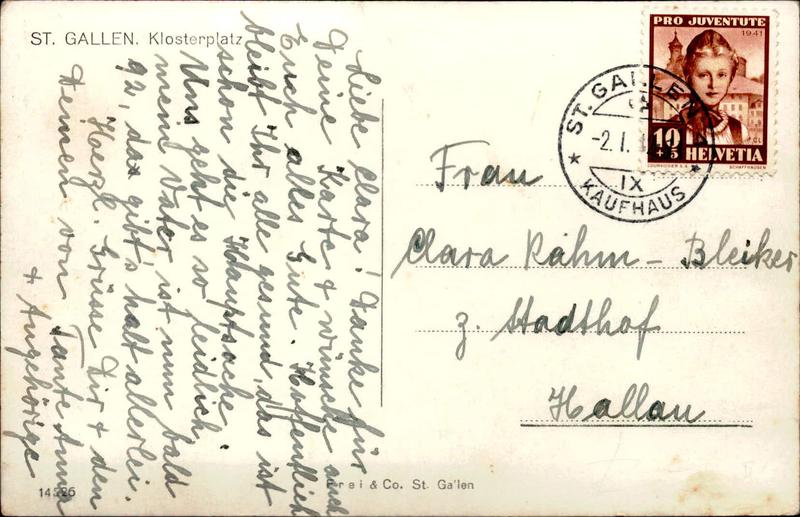 ST. GALLEN. Klosterplatz
Liebe Clara! Danke für
Deine Karte & wünsche auch
Euch alles Gute. Hoffentlich
bleibt Ihr alle gesund, das ist
schon die Hauptsache.
Uns geht es so leidlich.
mein Vater ist nun bald
92, da gibt's halt allerlei.
Herzl. Grüsse Dir & den
Deinen von Tante Anna
& Angehörige
14525
Frei & Co. St. Gallen
PRO JUVENTUTE
1941
10
+5
HELVETIA
COURVOISIER S.A.
SCHAFFHAUSEN
ST. GALLEN
-2. I.
IX
KAUFHAUS
Frau
Clara Rahm-Bleiker
z. Stadthof
Hallau